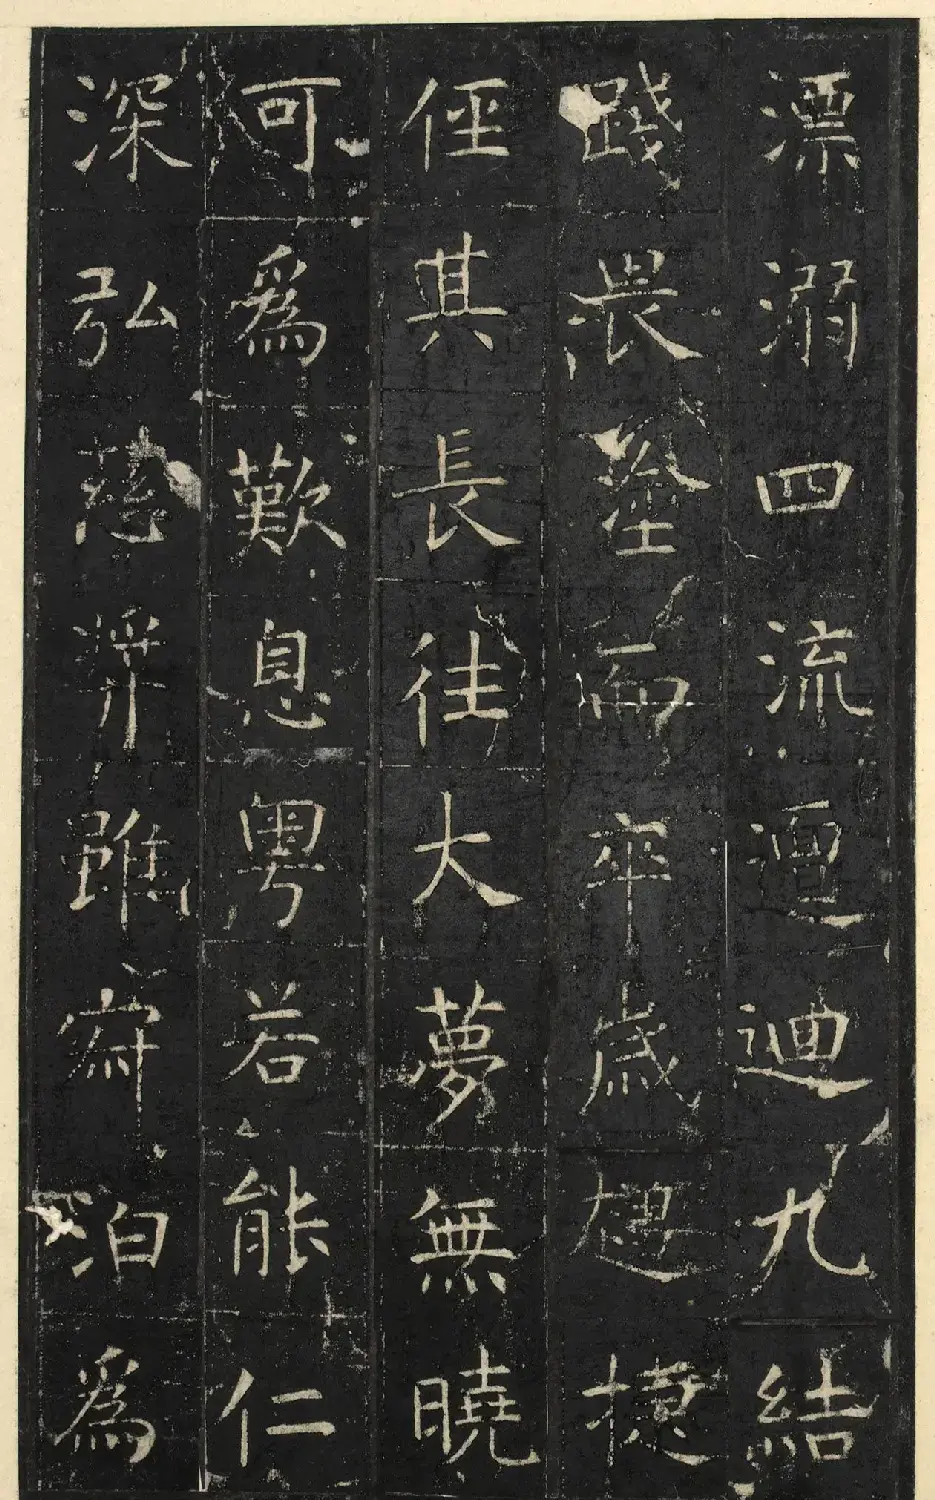 漂溺四流邅迴九結
踐畏塗而卒歲趨捷
徑其長往大夢無曉
可爲歎息粤若能仁
深弘慈濟雖寂泊爲